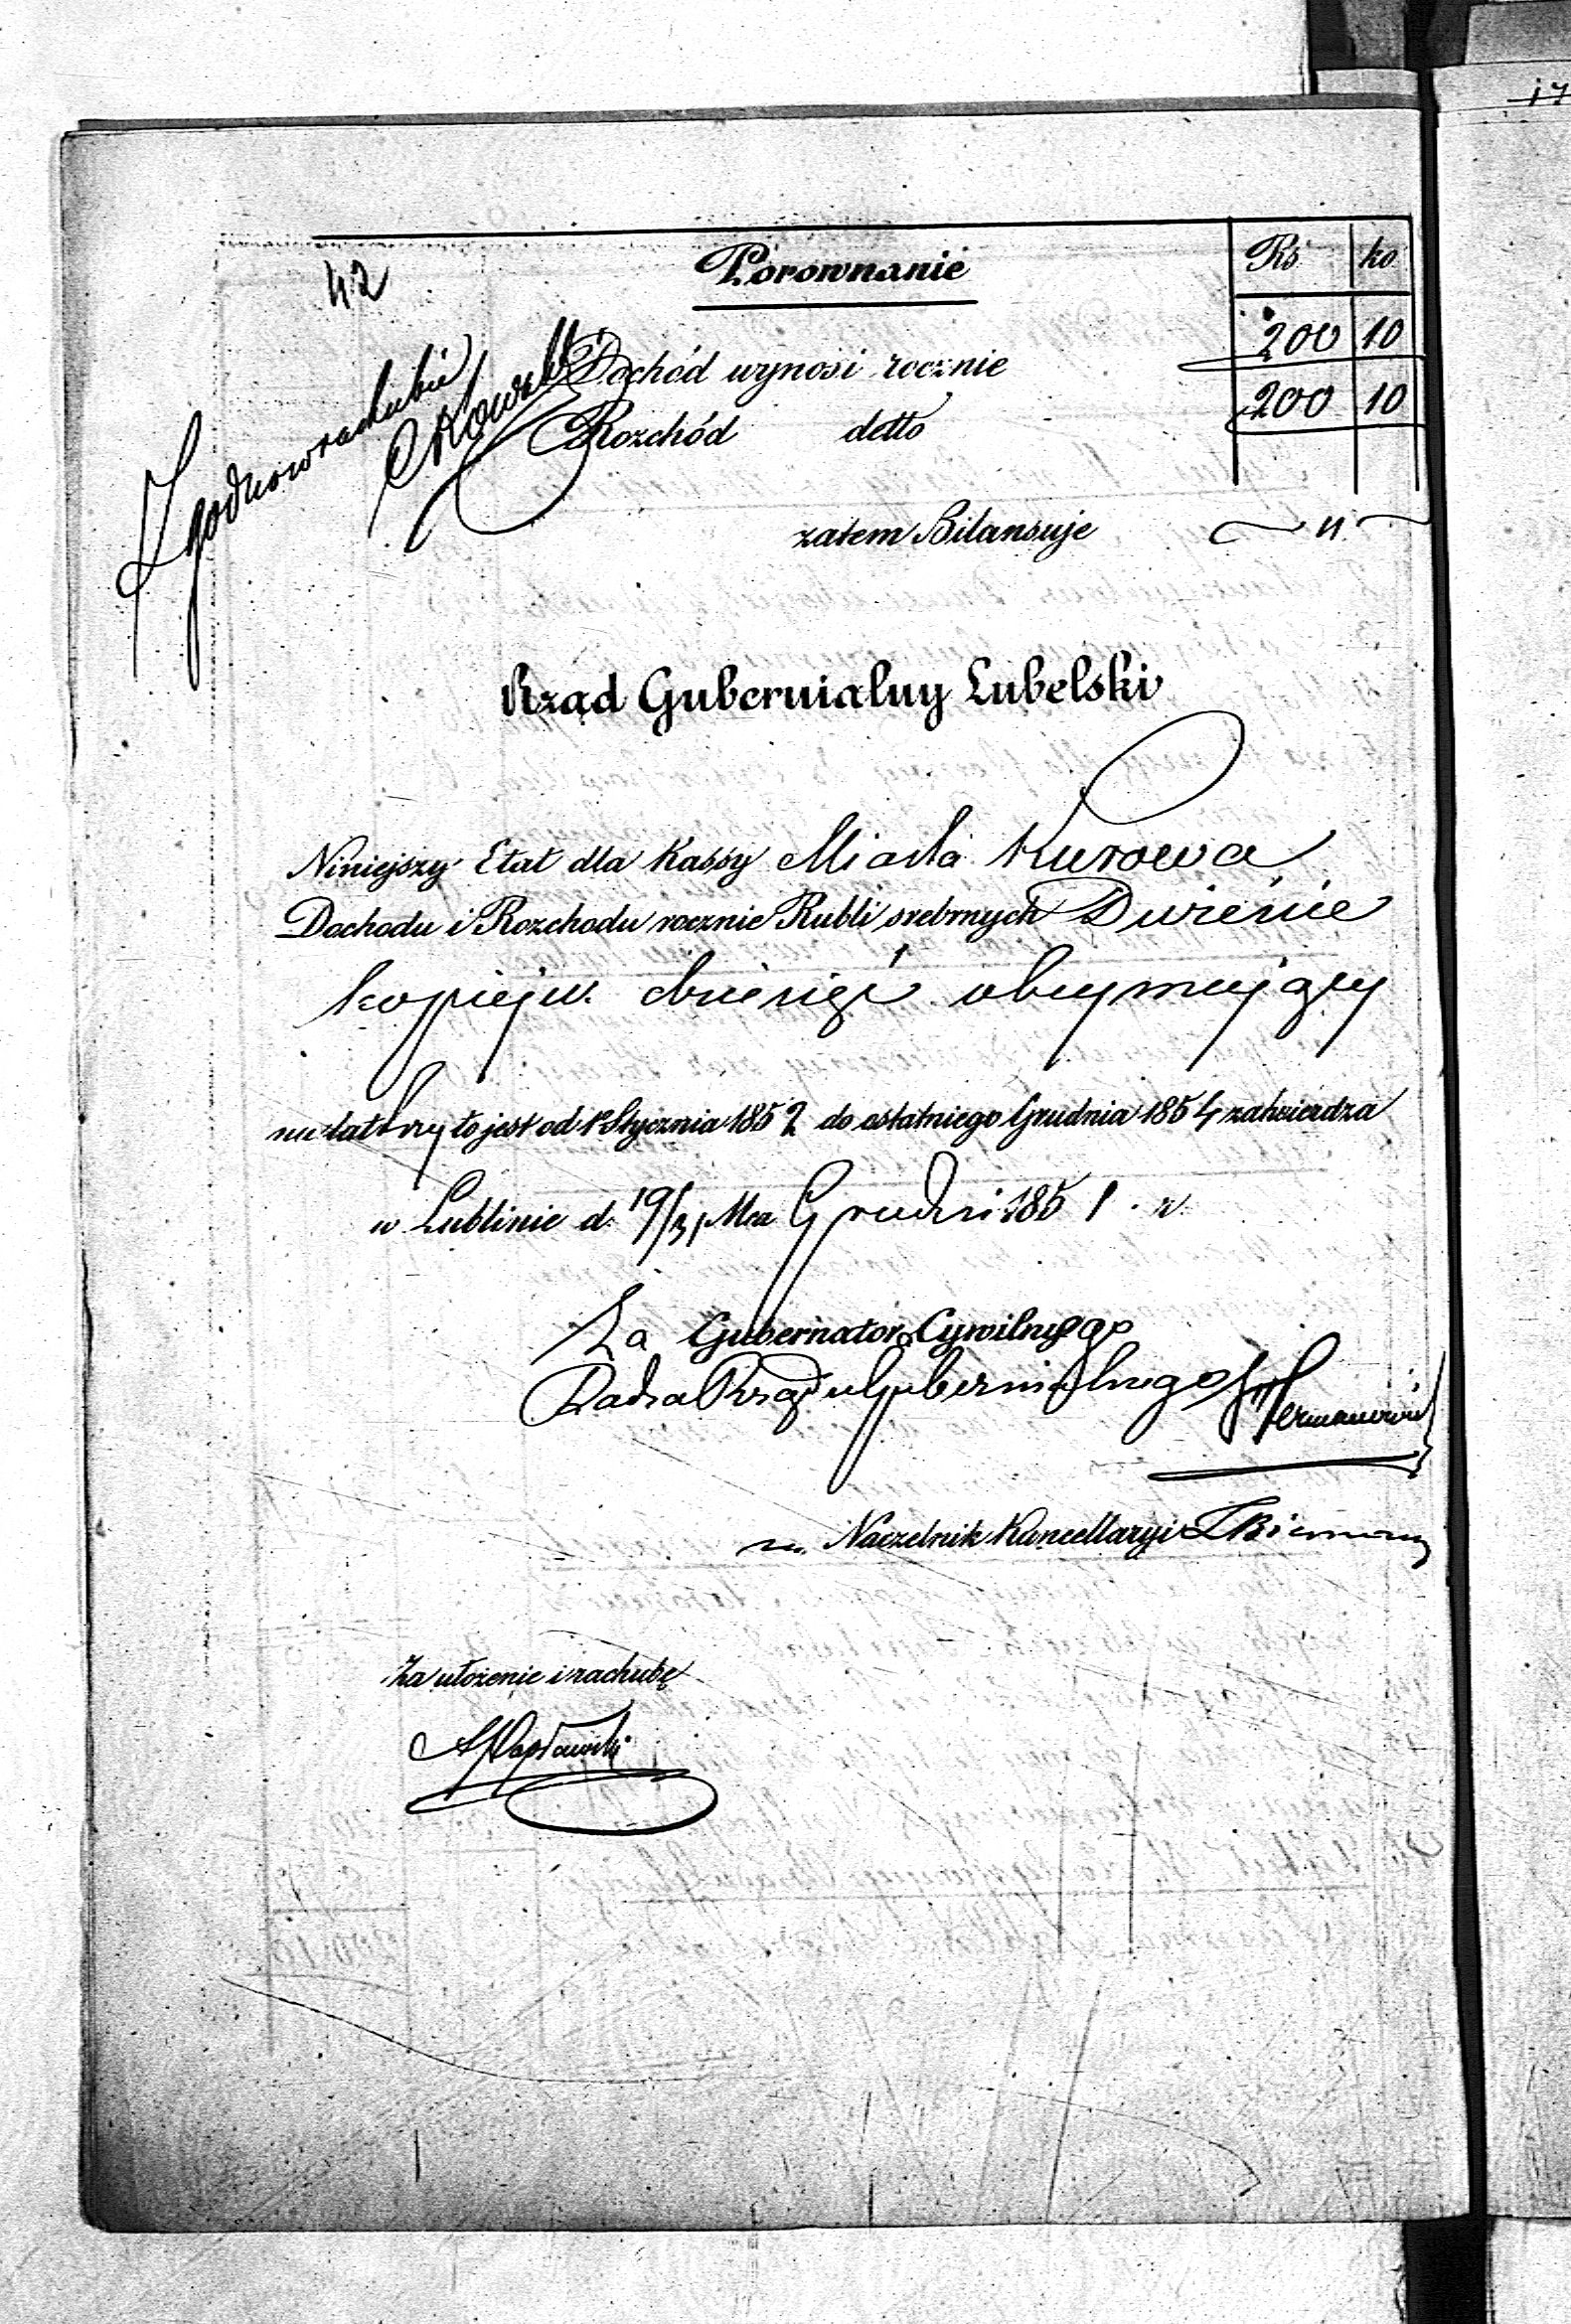 17
42
Porownanie
Rs ko
Zgodno w rachubie
Dochód wynosi rocznie 200 10
Rozchód detto 200 10
zatem Bilansuje "
Rząd Gubernialny Lubelski
Niniejszy Etat dla Kassy Miasta Kurowa
Dochodu i Rozchodu rocznie Rubli srebrnych Dwieście
kopiejek dziesięć obejmujący
na lat trzy to jest od 1o Stycznia 1852 do ostatniego Grudnia 1854 zatwierdza
w Lublinie d. 19/31 Mca Grudnia 1851 r.
Za Gubernatora Cywilnego
Radca Rządu Gubernialnego Hermanowicz
Naczelnik Kancellaryi
Za ułożenie i rachubę